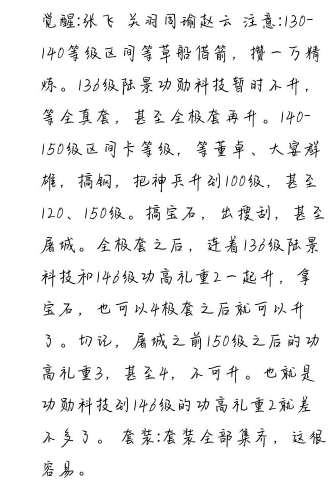 觉醒:张飞 关羽周瑜赵云 注意:130-
140等级区间等草船借箭，攒一万精
炼。136级陆景功勋科技暂时不升，
等全真套，甚至全极套再升。140-
150级区间卡等级，等董卓、大宴群
雄，搞铜，把神兵升到100级，甚至
120、150级。搞宝石，出搜刮，甚至
屠城。全极套之后，连着136级陆景
科技和146级功高礼重2一起升，拿
宝石，也可以4极套之后就可以升
了。切记，屠城之前150级之后的功
高礼重3，甚至4，不可升。也就是
功勋科技到146级的功高礼重2就差
不多了。 套装:套装全部集齐，这很
容易。